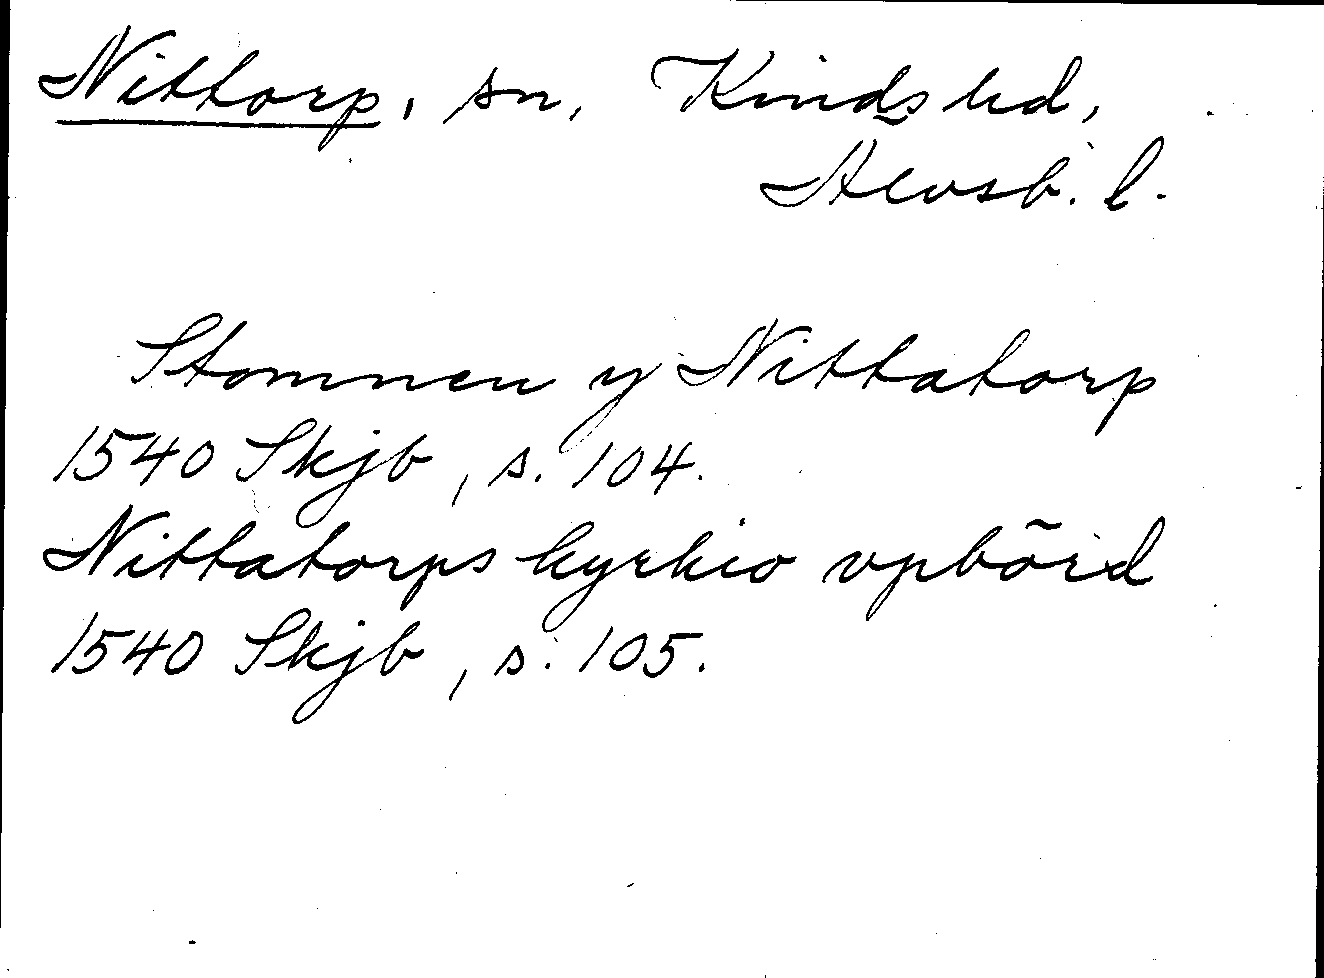 Nittorp, sn, Kinds hd,
Älvsb. l.
Stommen y Nittatorp
1540 Skjb, s. 104.
Nittatorps kyrkio vpbörd
1540 Skjb, s. 105.